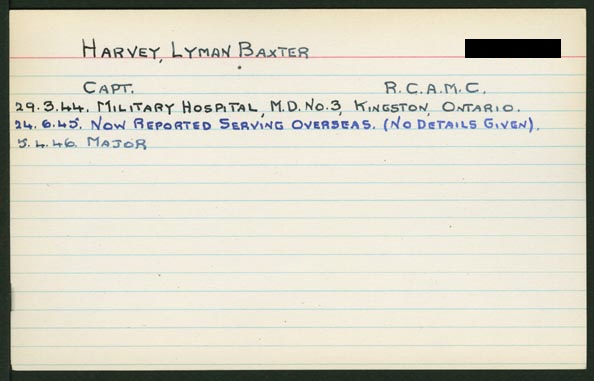 HARVEY, LYMAN BAXTER
CAPT. R.C.A.M.C.
29.3.44. MILITARY HOSPITAL, M.D. NO.3, KINGSTON, ONTARIO.
24.6.45. NOW REPORTED SERVING OVERSEAS. (NO DETAILS GIVEN).
5.4.46. MAJOR